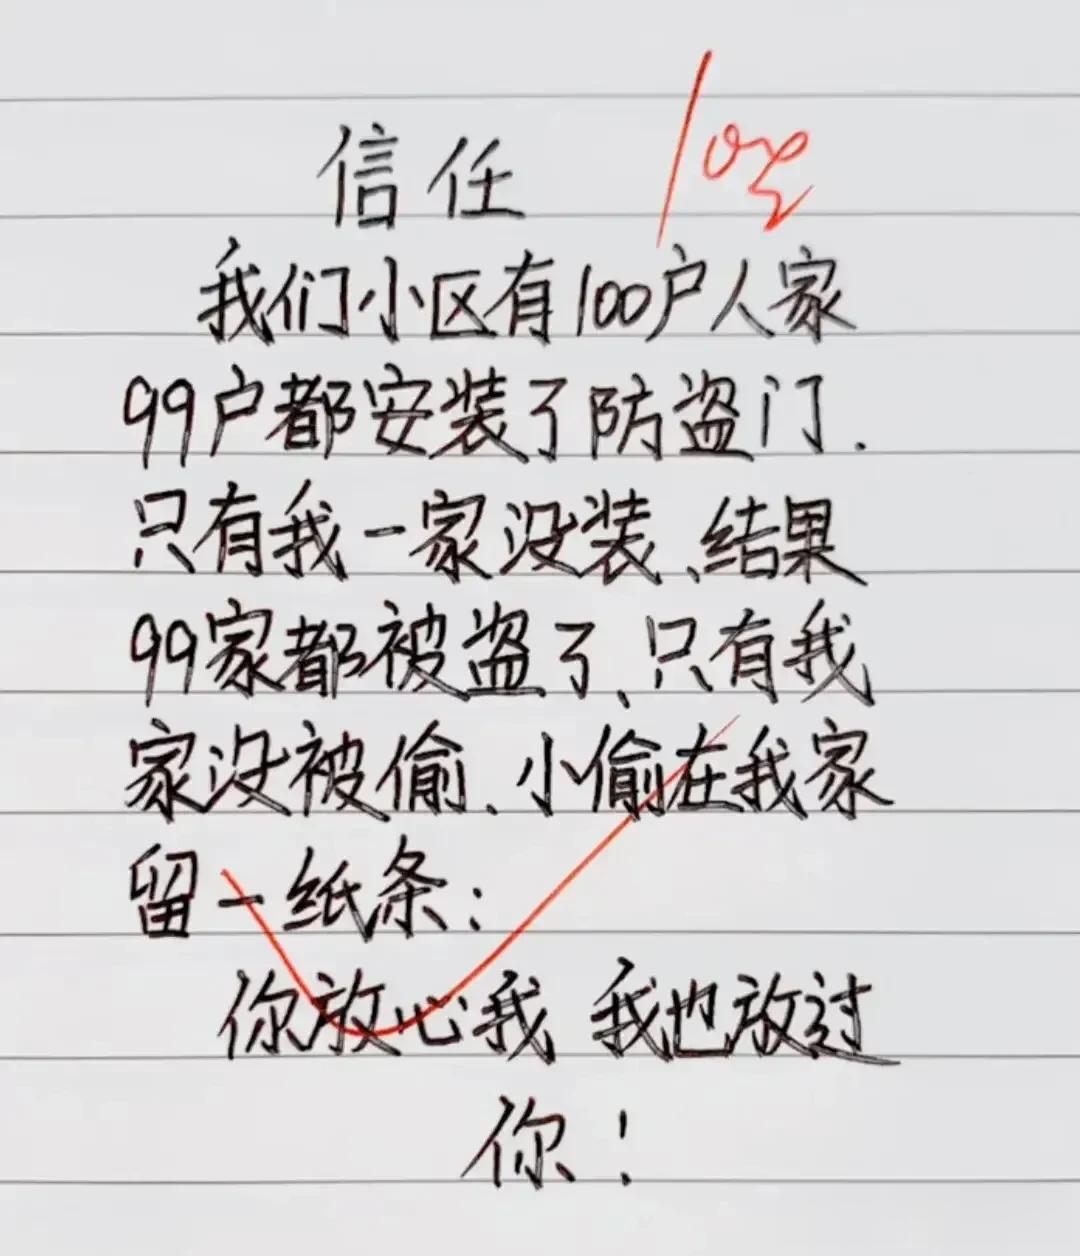 信任
我们小区有100户人家
99户都安装了防盗门.
只有我一家没装、结果
99家都被盗了、只有我
家没被偷、小偷在我家
留一纸条：
你放心我 我也放过
你！